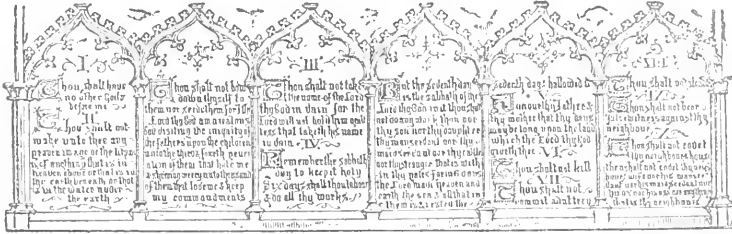 I
Thou shalt have
no other Gods
before me
II
Thou shalt not
make unto thee any
graven image or the liknes
of any thing that is in
heaven above or that is in
the earth beneath or that
is in the water under
the earth
Thou shalt not bow
down thyself to
them nor serve them for I the
Lord thy God am a jealous
God visiting the iniquity of
the fathers upon the children
unto the third & fourth genera
ation of them that hate me
& shewing mercy unto thousands
of them that love me & keep
my commandments
III
Thou shalt not take
the name of the Lord
thy God in vain for the
Lord will not hold him guilt
less that taketh his name
in vain
IV
Remember the sabbath
day to keep it holy
Six days shalt thou labour
& do all thy work
But the seventh day
is the sabbath of the
Lord thy God in it thou shalt
not do any work thou nor
thy son nor thy daughter
thy manservant nor thy
maidservant nor thy cattle
nor thy stranger that is within
in thy gates for in 6 days
the Lord made heaven and
earth the sea & all that in
them is & rested the
seventh day hallowed it
Honour thy father &
thy mother that thy days
may be long upon the land
which the Lord thy God
giveth thee
VI
Thou shalt not kill
VII
Thou shalt not
commit adultery
Thou shalt not steal
IX
Thou shalt not bear
false witness against thy
neighbour
X
Thou shalt not covet
thy neighbours house
thou shalt not covet thy